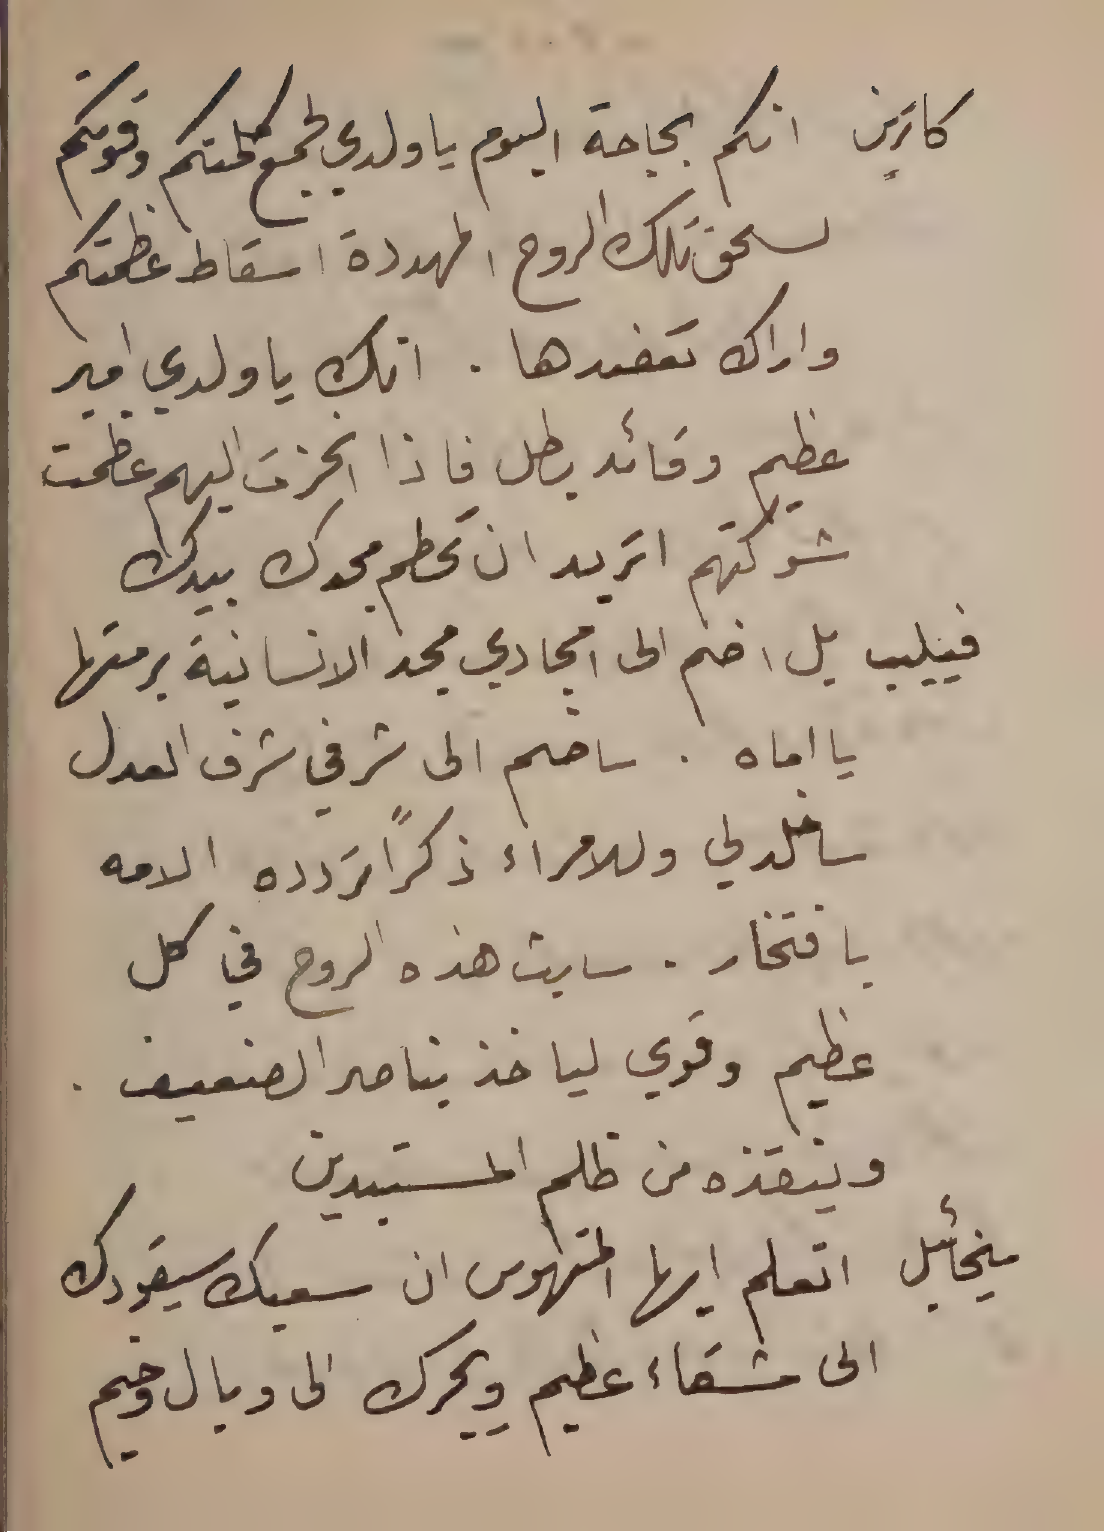 كاترين انكم بحاجة اليوم يا ولدي لجمع كلمتكم وقوتكم
لسحق تلك الروح المهددة اسقاط عظمتكم
واراك تعضدها . انك يا ولدي امير
عظيم وقائد بطل فاذا انحزت اليهم عظمت
شوكتهم اتريد ان تحطم مجدك بيدك
فيليب بل اضم الى امجادي مجد الانسانية برمتها
يا اماه . ساضم الى شرفي شرف العدل
ساخلد لي وللامراء ذكراً تردده الامه
بافتخار . سابث هذه الروح في كل
عظيم وقوي لياخذ بناصر الضعيف .
وينقذه من ظلم المستبدين
ميخائيل اتعلم ايها المتهوس ان سعيك سيقودك
الى شقاء عظيم ويجرك الى وبال وخيم